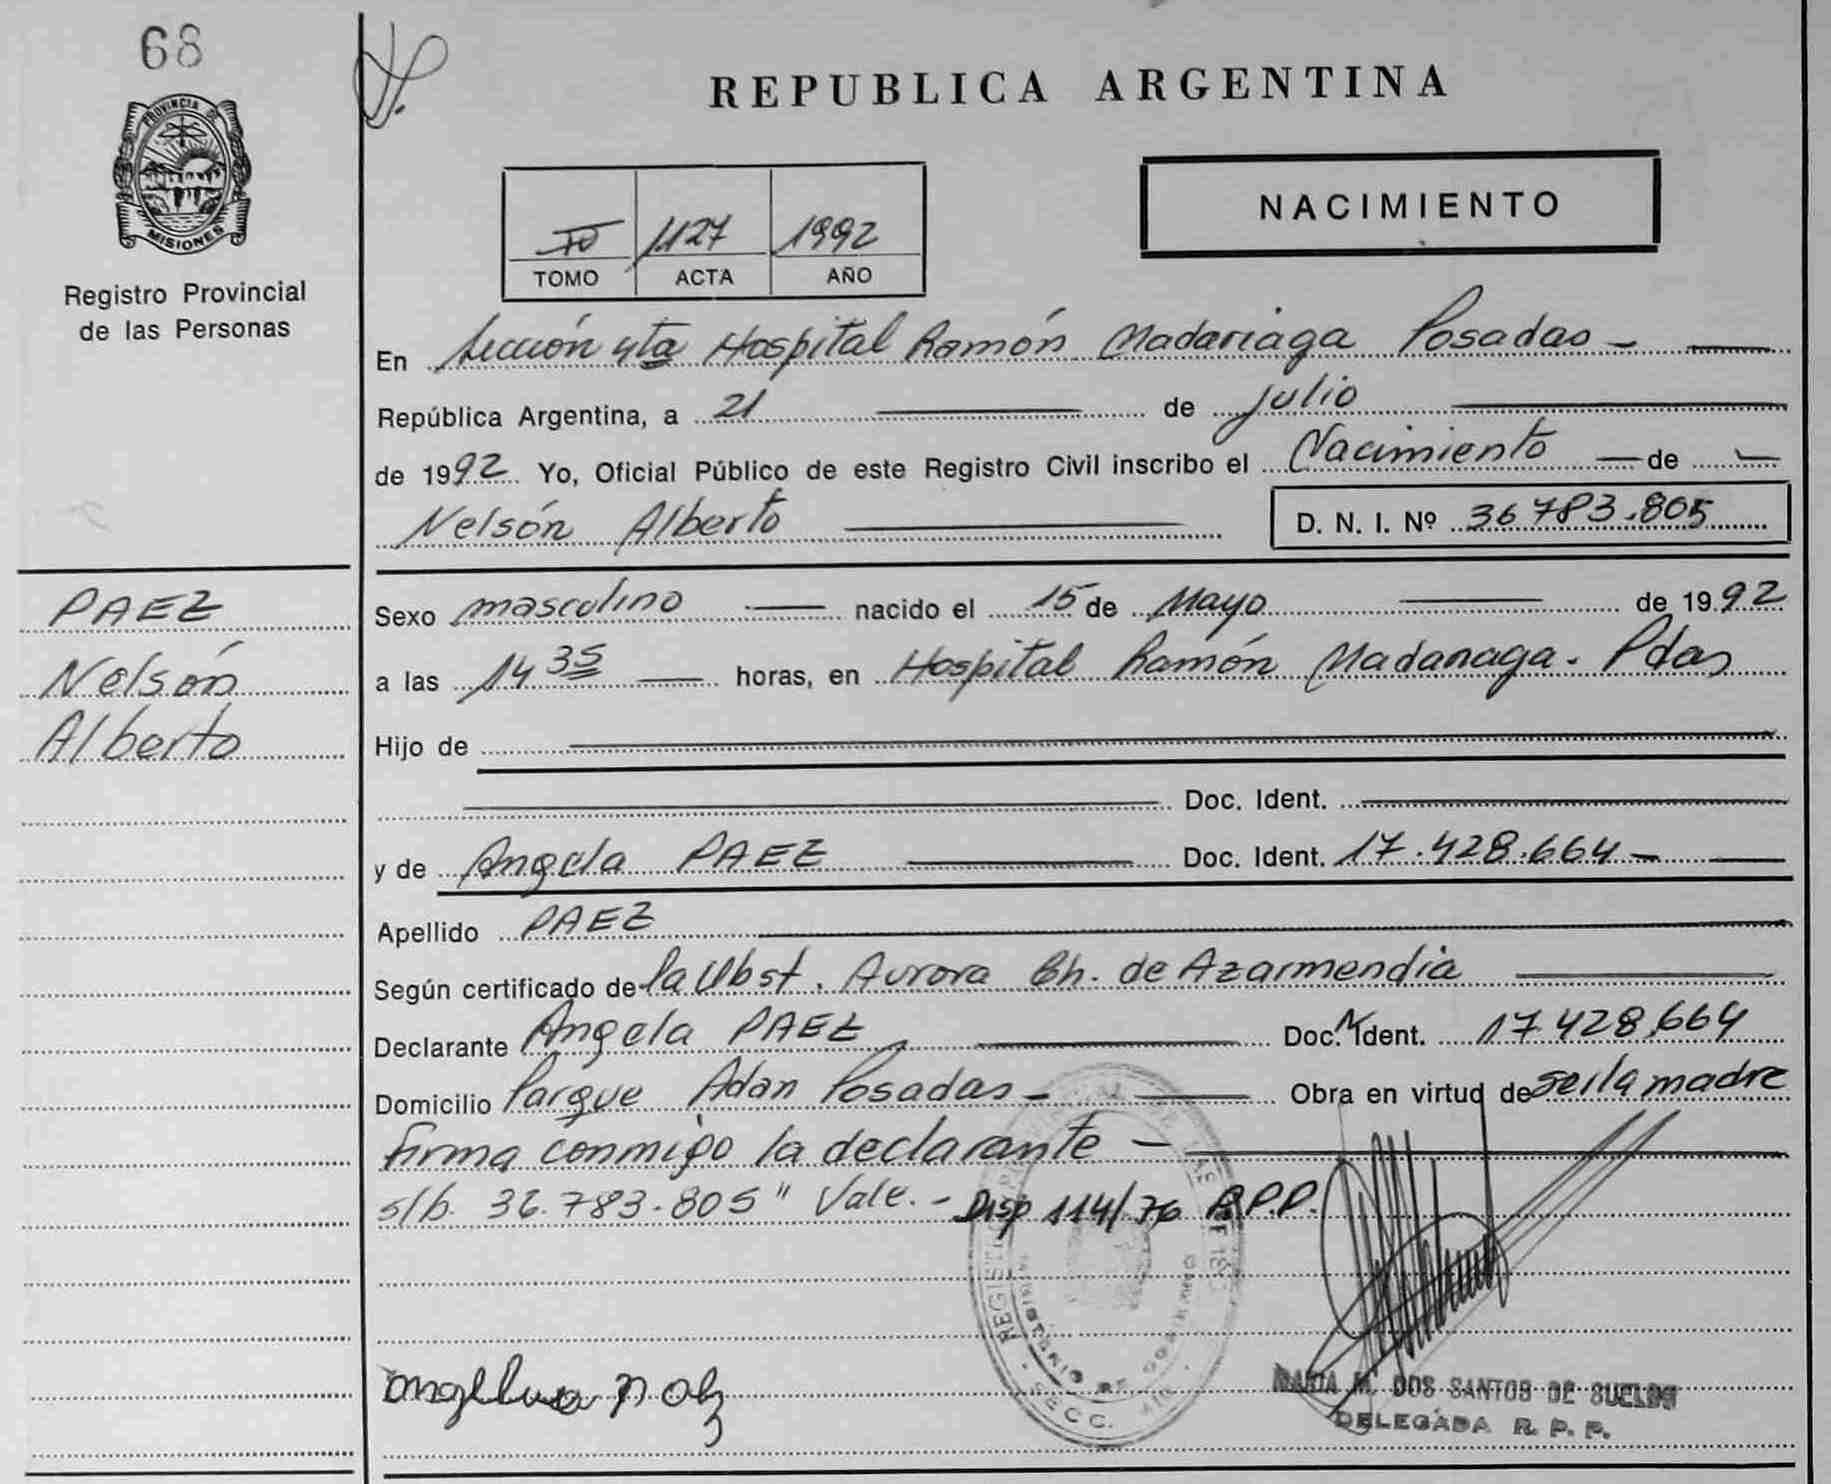 68
PROVINCIA DE
MISIONES
Registro Provincial
de las Personas
PAEZ
Nelsón
Alberto
REPUBLICA ARGENTINA
NACIMIENTO
IV 1127 1992
TOMO ACTA AÑO
En Sección 4ta Hospital Ramón Madariaga Posadas -
República Argentina, a 21 de julio
de 1992 Yo, Oficial Público de este Registro Civil inscribo el Nacimiento de
Nelsón Alberto
D. N. I. Nº 36 783.805
Sexo masculino nacido el 15 de Mayo de 1992
a las 14 35 horas, en Hospital Ramón Madariaga. Pdas
Hijo de
Doc. Ident.
y de Angela PAEZ Doc. Ident. 17.428.664 -
Apellido PAEZ
Según certificado de la Obst. Aurora Ch. de Azarmendia
Declarante Angela PAEZ Doc. Ident. 17.428.664
Domicilio Parque Adan Posadas - Obra en virtud de ser la madre
Firma conmigo la declarante -
s/b. 36.783.805" Vale. - Disp 114/76 R.P.P.
MARIA M. DOS SANTOS DE SUELDO
DELEGADA R. P. P.